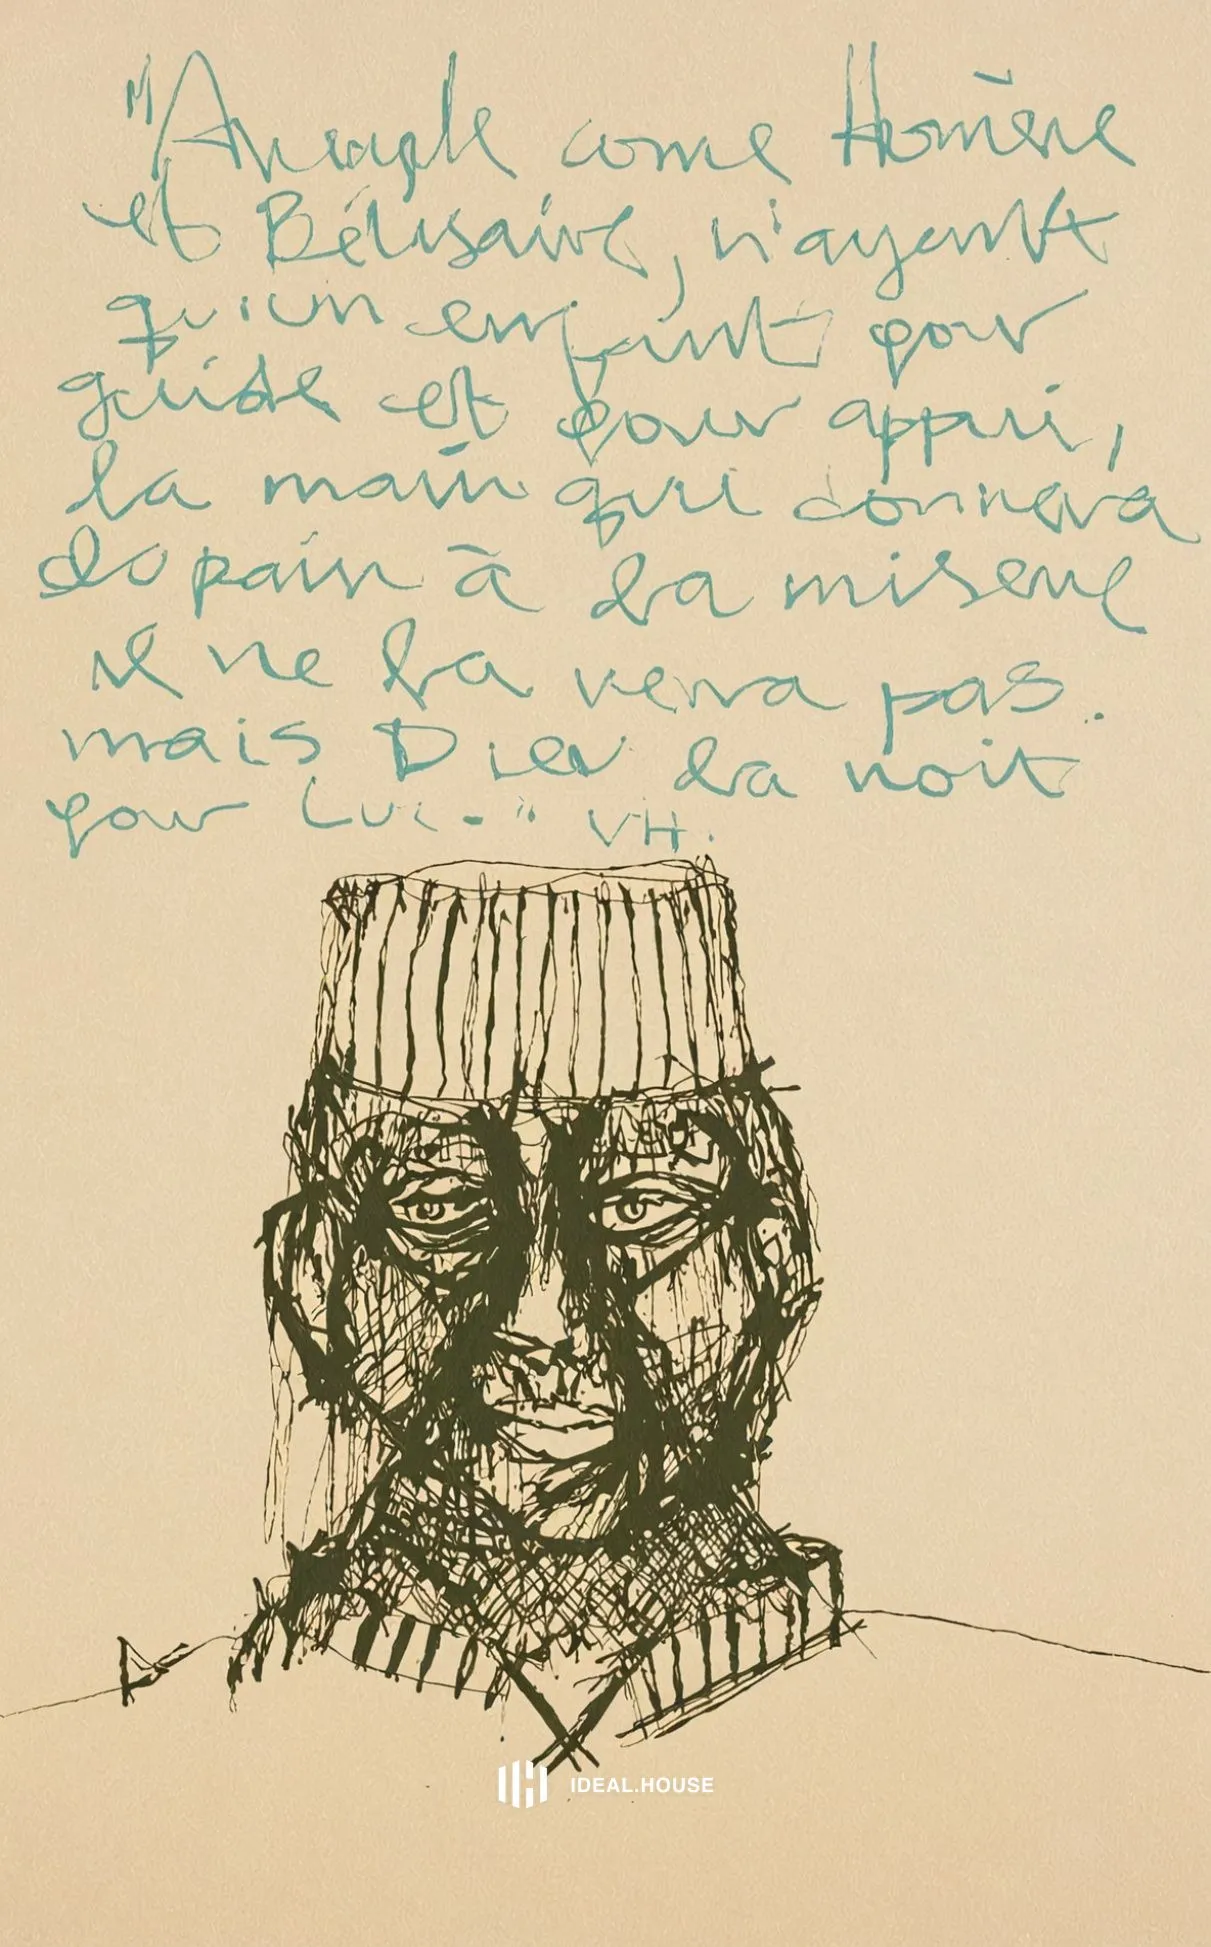 "Aveugle come Homère
et Bélisaire, n'ayant
qu'un enfant pour
guide et pour appui,
la main qui donnera
du pain à la misère
il ne la verra pas.
mais Dieu la voit
pour Lui.." VH.
IDEAL.HOUSE